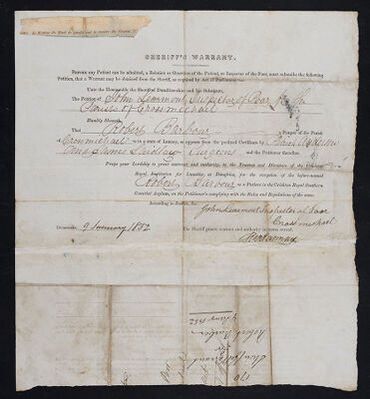 SHERIFF'S WARRANT.
BEFORE any Patient can be admitted, a Relation or Guardian of the Patient, or Inspector of the Poor, must subscribe the following
Petition, that a Warrant may be obtained from the Sheriff, as required by Act of Parliament:—
Unto the Honourable the Sheriff of Dumfriesshire and his Substitutes,
The Petition of John Learmont Inspector of Poor for the
Parish of Crossmichael
Humbly Sheweth,
That Robert Barbour a Pauper of the Parish
Crossmichael is in a state of Lunacy, as appears from the prefixed Certificate by
and James Surgeons and the Petitioner therefore
Prays your Lordship to grant warrant and authority to the Treasurer and Directors of the Crichton
Royal Institution for Lunatics at Dumfries, for the reception of the before-named
Robert Barbour as a Patient in the Crichton Royal Southern
Counties Asylum, on the Petitioner's complying with the Rules and Regulations of the same.
According to Justice, &c.
John Learmont Inspector of Poor
Crossmichael
Dumfries, 9 January 1852 The Sheriff grants warrant and authority in terms craved.
Robert Barbour
1852